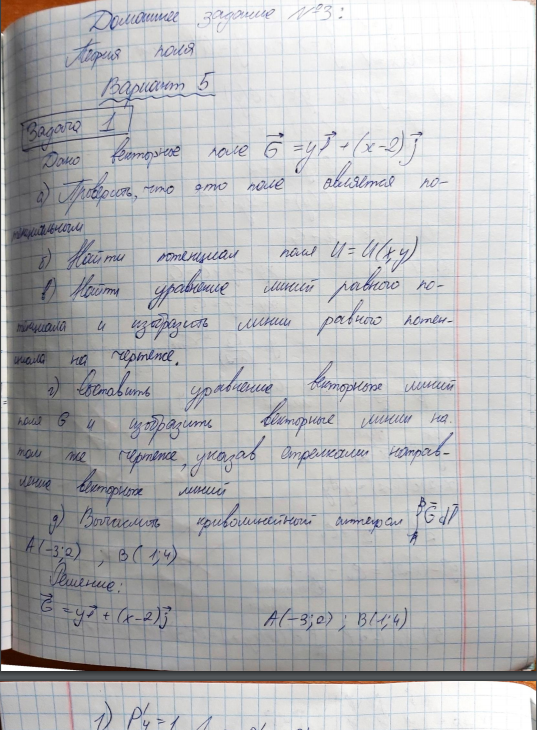 Домашнее задание №3:
Теория поля
Вариант 5
Задача 1
Дано векторное поле G⃗ = yi⃗ + (x-2)j⃗
а) Проверить, что это поле является по-
тенциальным
б) Найти потенциал поля U = U(x,y)
в) Найти уравнение линий равного по-
тенциала и изобразить линии равного потен-
циала на чертеже.
г) Составить уравнение векторных линий
поля G и изобразить векторные линии на
том же чертеже, указав стрелками направ-
ление векторных линий
д) Вычислить криволинейный интеграл ∫ᴬᴮ G⃗ dl⃗
A(-3;2), B(1;4)
Решение:
G⃗ = yi⃗ + (x-2)j⃗ A(-3;2); B(1;4)
1) P'y = 1